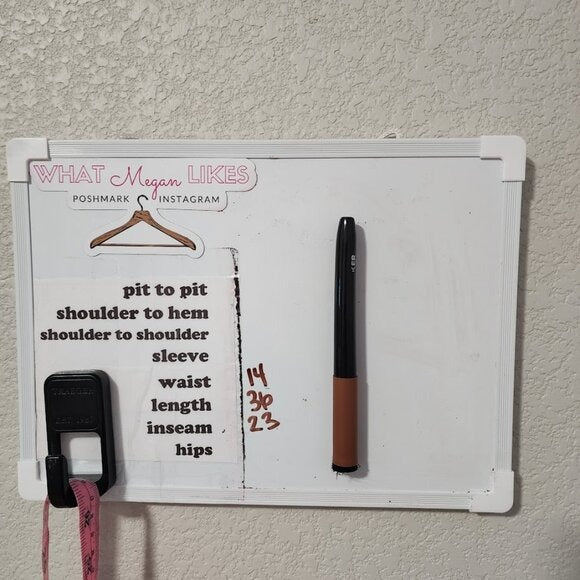 WHAT Megan LIKES
POSHMARK INSTAGRAM
pit to pit
shoulder to hem
shoulder to shoulder
sleeve
waist 14
length 36
inseam 23
hips
TRAEGER